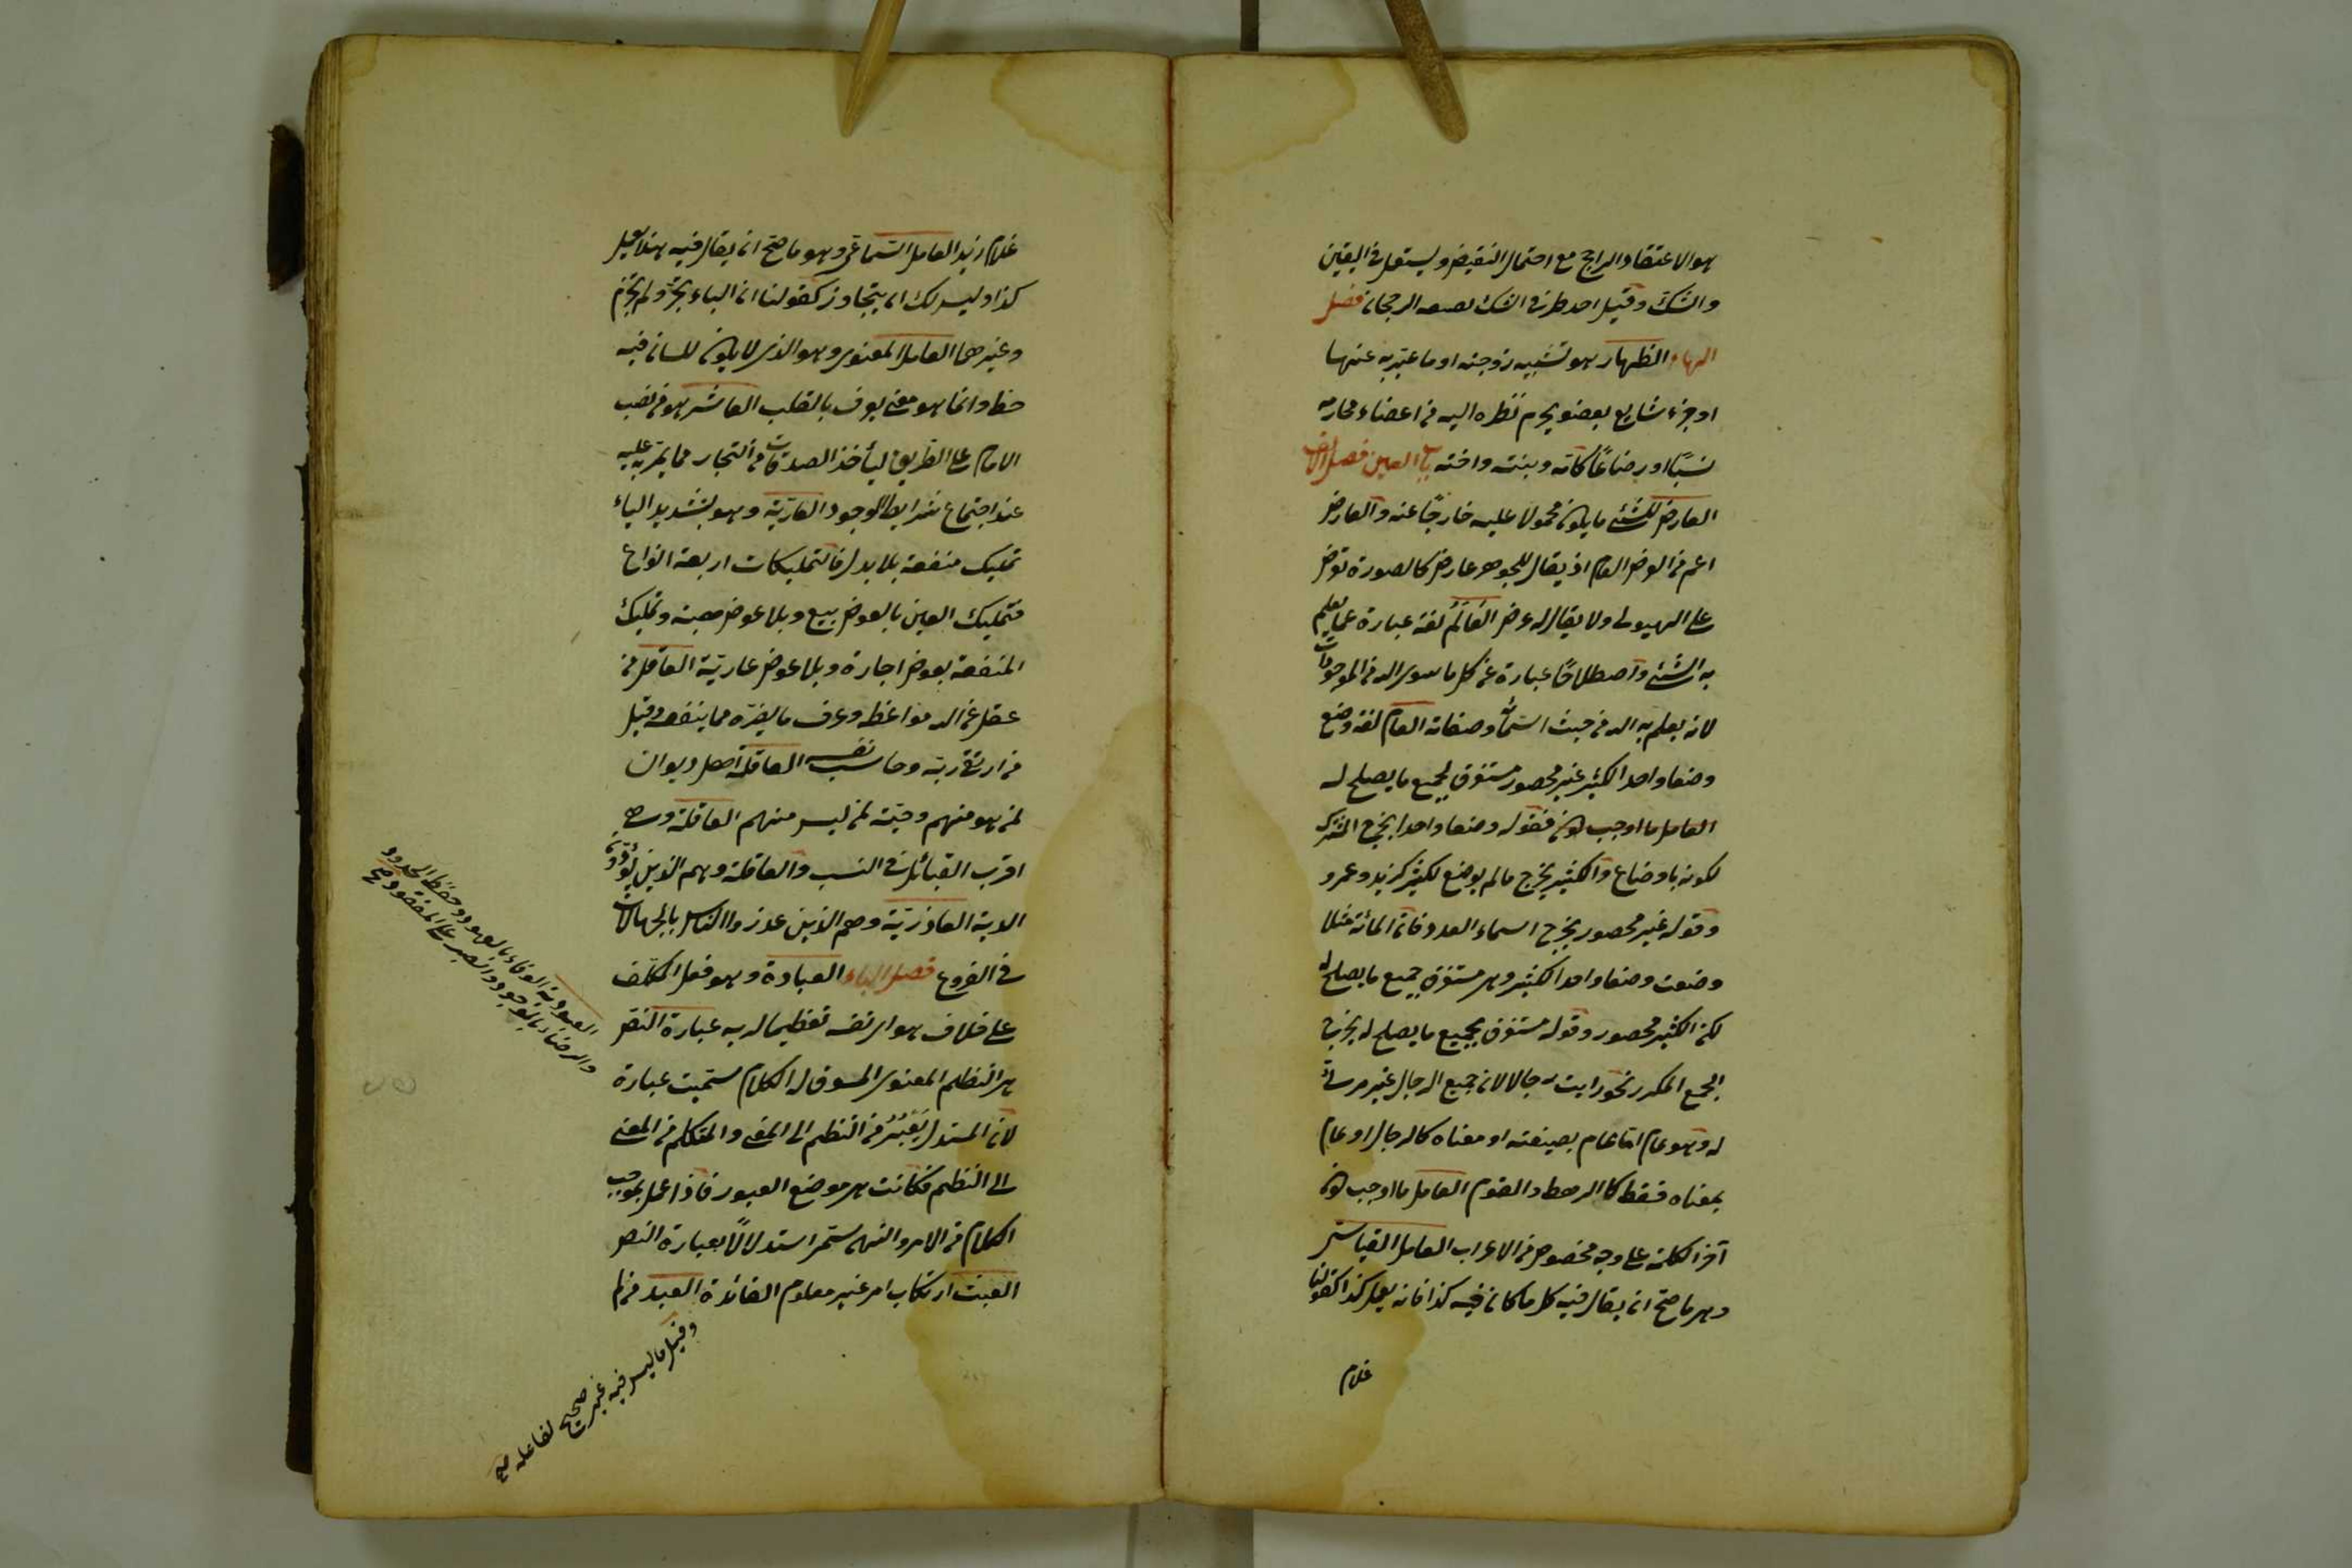 هو الاعتقاد الراجح مع احتمال النقيض ويستعمل في اليقين
والشك وقيل احد طرفي الشك بصفة الرجحان فصل
الهاء الظهار هو تشبيه زوجته او ما عبر به عنها
او جزء شايع بعضو يحرم نظره اليه من اعضاء محارمه
نسبًا او رضاعًا كامه وبنته واخته باب العين فصل الالف
العارض للشئ ما يكون محمولا عليه خارجًا عنه والعارض
اعم من العرض العام اذ يقال للجوهر عارض كالصورة تعرض
على الهيولى ولا يقال له عرض العالم لغة عبارة عما يعلم
به الشئ واصطلاحًا عبارة عن كل ما سوى الله من الموجودات
لانه يعلم به الله من حيث اسمائه وصفاته العام لفظ وضع
وضعا واحدا لكثير غير محصور مستغرق لجميع ما يصلح له
العامل ما اوجب كون فقوله وضعا واحدا يخرج المشترك
لكونه باوضاع والكثير يخرج ما لم يوضع لكثير كزيد وعمرو
وقوله غير محصور يخرج اسماء العدد فان المائة مثلا
وضعت وضعا واحدا لكثير وهى مستغرق جميع ما يصلح له
لكن الكثير محصور وقوله مستغرق بجميع ما يصلح له يخرج
الجمع المنكر نحو رايت رجالا لان جميع الرجال غير مرئى
له وهو عام اما عام بصيغته او معناه كالرجال او عام
بمعناه فقط كالرهط والقوم العامل ما اوجب كون
آخر الكلمة على وجه مخصوص من الاعراب العامل القياسى
وهو ما صح ان يقال فيه كل ما كان فيه كذا فانه يعمل كذا كقولنا
غلام
غلام زيد العامل السماعى وهو ما صح ان يقال فيه هذا يعمل
كذا وليس لك ان يتجاوز كقولنا ان الباء تجر ولم تجزم
وغيرهما العامل المعنوى وهو الذى لا يكون للسان فيه
حظ وانما هو معنى يعرف بالقلب العاشر هو من نصب
الامام على الطريق ليأخذ الصدقات من التجار مما يمر به عليه
عند اجتماع شرايط الوجود العاريّة وهو بتشديد الياء
تمليك منفعة بلا بدل فالتمليكات اربعة انواع
فتمليك العين بالعوض بيع وبلا عوض هبة وتمليك
المنفعة بعوض اجارة وبلا عوض عاريّة العاقل من
عقل عن الله مواعظه وعرف ما يضره مما ينفعه وقيل
من اتقى ربه وحاسب نفسه العاقلة اهل ديوان
لمن هو منهم وحيّه لمن ليس منهم العاقلة وهى
اقرب القبائل فى النسب والعاقلة وهم الذين يؤدون
الدية العاذريّة وهم الذين عذروا الناس بالجهالات
فى الفروع فصل الباء العبادة وهو فعل المكلف
على خلاف هوى نفسه تعظيما لربه عبارة النص
هى النظم المعنوى المسوق له الكلام سميت عبارة
لان المستدل يَعْبُرُ من النظم الى المعنى والمتكلم من المعنى
الى النظم فكانت هى موضع العبور فاذا عمل بموجب
الكلام من الامر والنهى يسمى استدلالًا بعبارة النص
العبث ارتكاب امر غير معلوم الفائدة العبد من لم
وقيل ما ليس فيه غير صحيح لفاعله صح
العبودية الوفاء بالعهود وحفظ الحدود
والرضاء بالموجود والصبر على المفقود صح